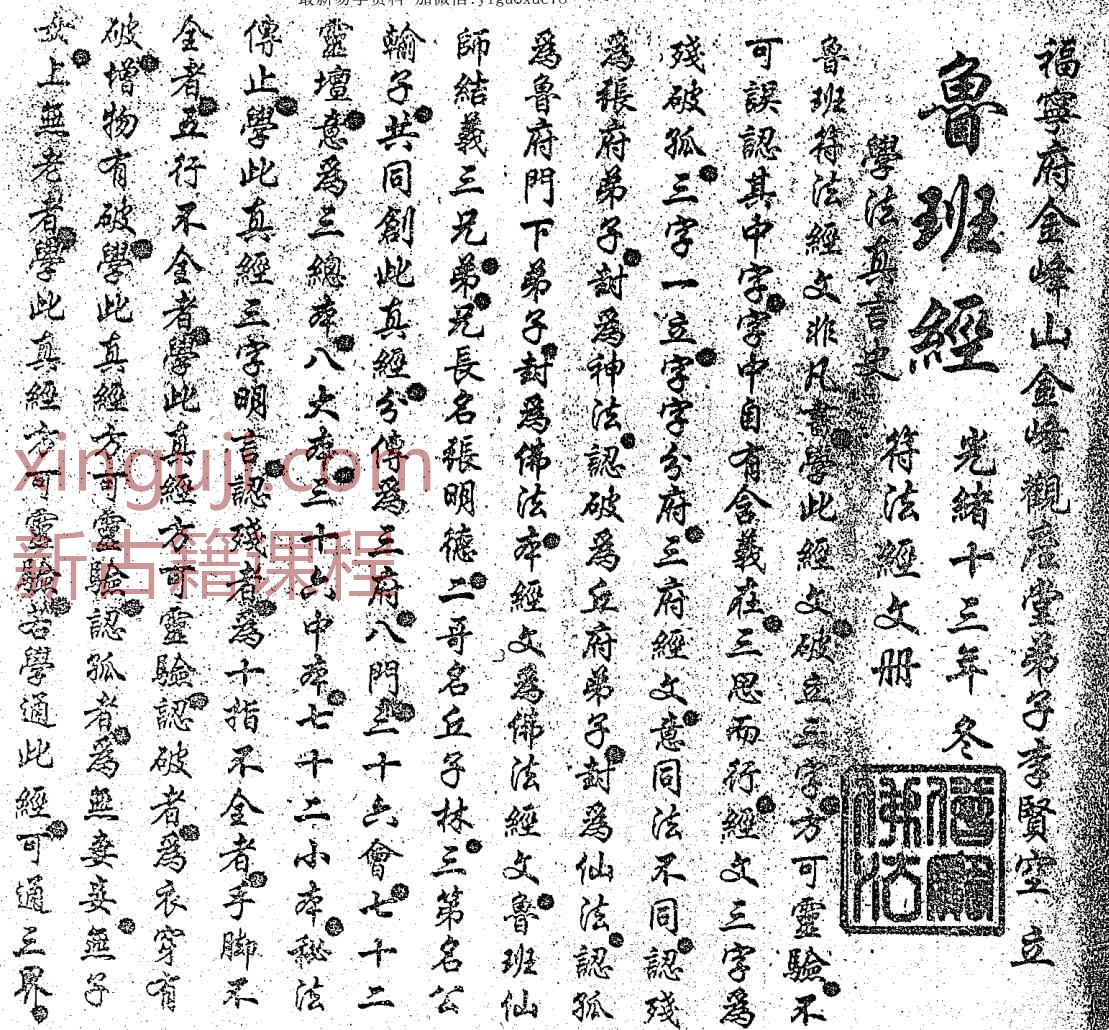 最新易学资料 加微信:yiguoxue78
福寧府金峰山金峰觀座堂弟子李賢空立
魯班經 光緒十三年冬
學法真言史 符法經文册
魯班符法經文非凡書學此經文破立三字方可靈驗不
可誤認其中字字中自有含義在三思而行經文三字為
殘破孤三字一立字字分府三府經文意同法不同認殘
為張府弟子封為神法認破為丘府弟子封為仙法認孤
為魯府門下弟子封為佛法本經文為佛法經文魯班仙
師結義三兄弟兄長名張明德二哥名丘子林三第名公
輸子共同創此真經分傳為三府八門三十六會七十二
靈壇意為三總本八大本三十六中本七十二小本秘法
傳止學此真經三字明言認殘者為十指不全者手脚不
全者五行不全者學此真經方可靈驗認破者為衣穿有
破增物有破學此真經方可靈驗認孤者為無妻妾無子
女上無老者學此真經方可靈驗若學通此經可通三界
佛法
xinguji.com
新古籍课程